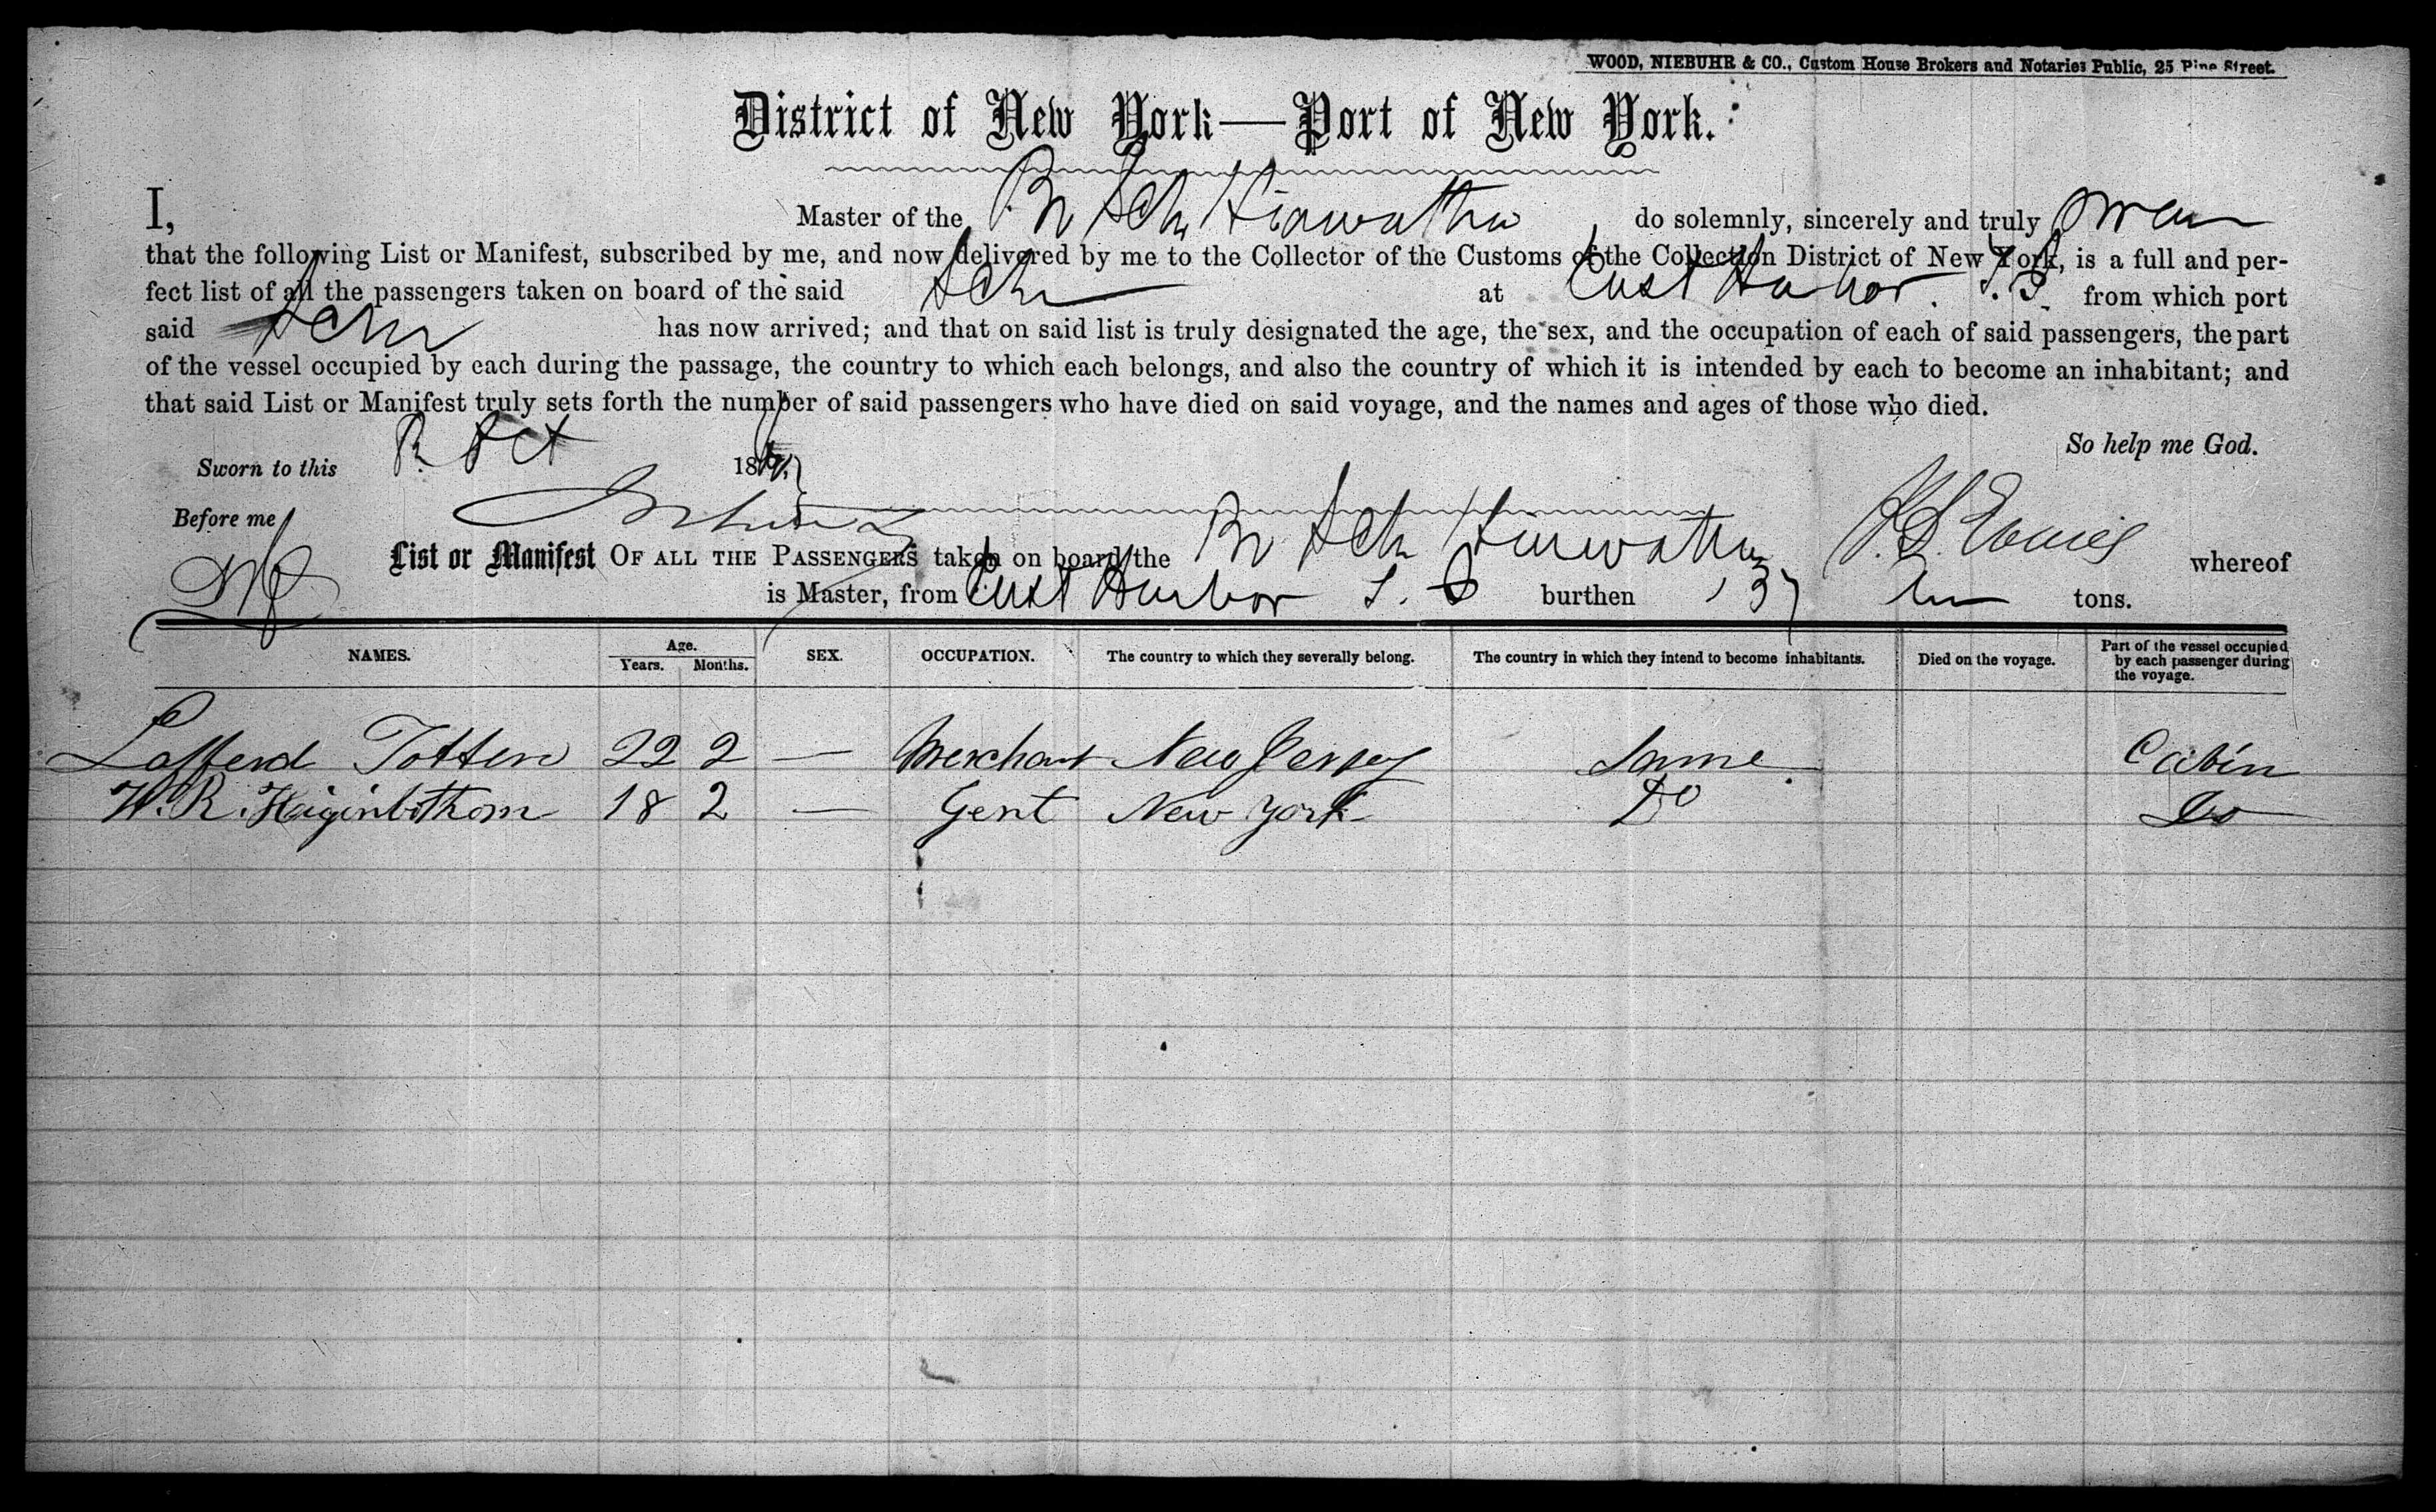 WOOD, NIEBUHR & CO., Custom House Brokers and Notaries Public, 25 Pine Street.
District of New York—Port of New York.
I, Master of the Br Schr Hiawatha, do solemnly, sincerely and truly swear
that the following List or Manifest, subscribed by me, and now delivered by me to the Collector of the Customs of the Collection District of New York, is a full and per-
fect list of all the passengers taken on board of the said Schr at East Harbor. T. I. from which port
said Schr has now arrived; and that on said list is truly designated the age, the sex, and the occupation of each of said passengers, the part
of the vessel occupied by each during the passage, the country to which each belongs, and also the country of which it is intended by each to become an inhabitant; and
that said List or Manifest truly sets forth the number of said passengers who have died on said voyage, and the names and ages of those who died.
So help me God.
Sworn to this Oct 18
Before me
List or Manifest OF ALL THE PASSENGERS taken on board the Br Schr Hiawatha whereof
is Master, from East Harbor T. I burthen 137 tons.
NAMES. Age. Years. Months. SEX. OCCUPATION. The country to which they severally belong. The country in which they intend to become inhabitants. Died on the voyage. Part of the vessel occupied by each passenger during the voyage.
Lafferd Totten 22 2 — Merchant New Jersey Same Cabin
W. R. Higinbothom 18 2 — Gent New York Do Do